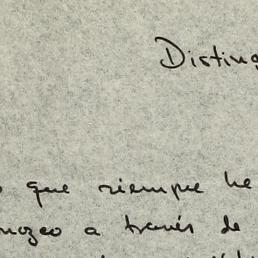 Disting
que siempre he
nozco a través de